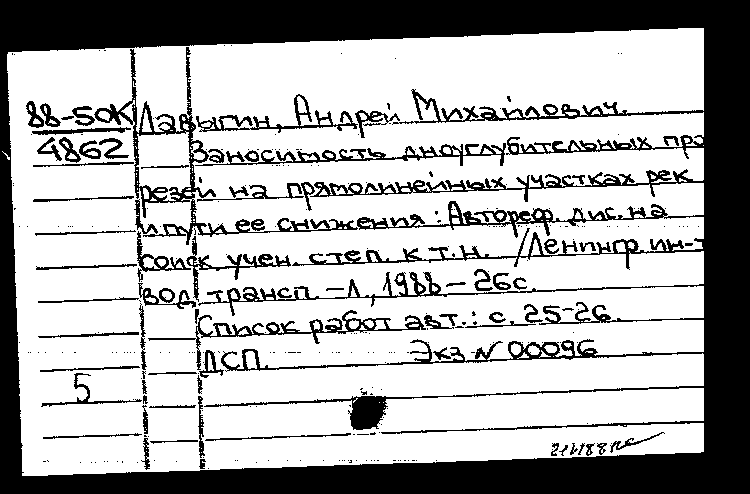 88-50К Лавыгин, Андрей Михайлович.
4862 Заносимость дноуглубительных про
резей на прямолинейных участках рек
и пути ее снижения : Автореф. дис. на
соиск учен. степ. к т.н. /Ленингр. ин-т
вод. трансп. – Л., 1988 – 26с.
Список работ авт.: с. 25-26.
ДСП. Экз № 00096
5